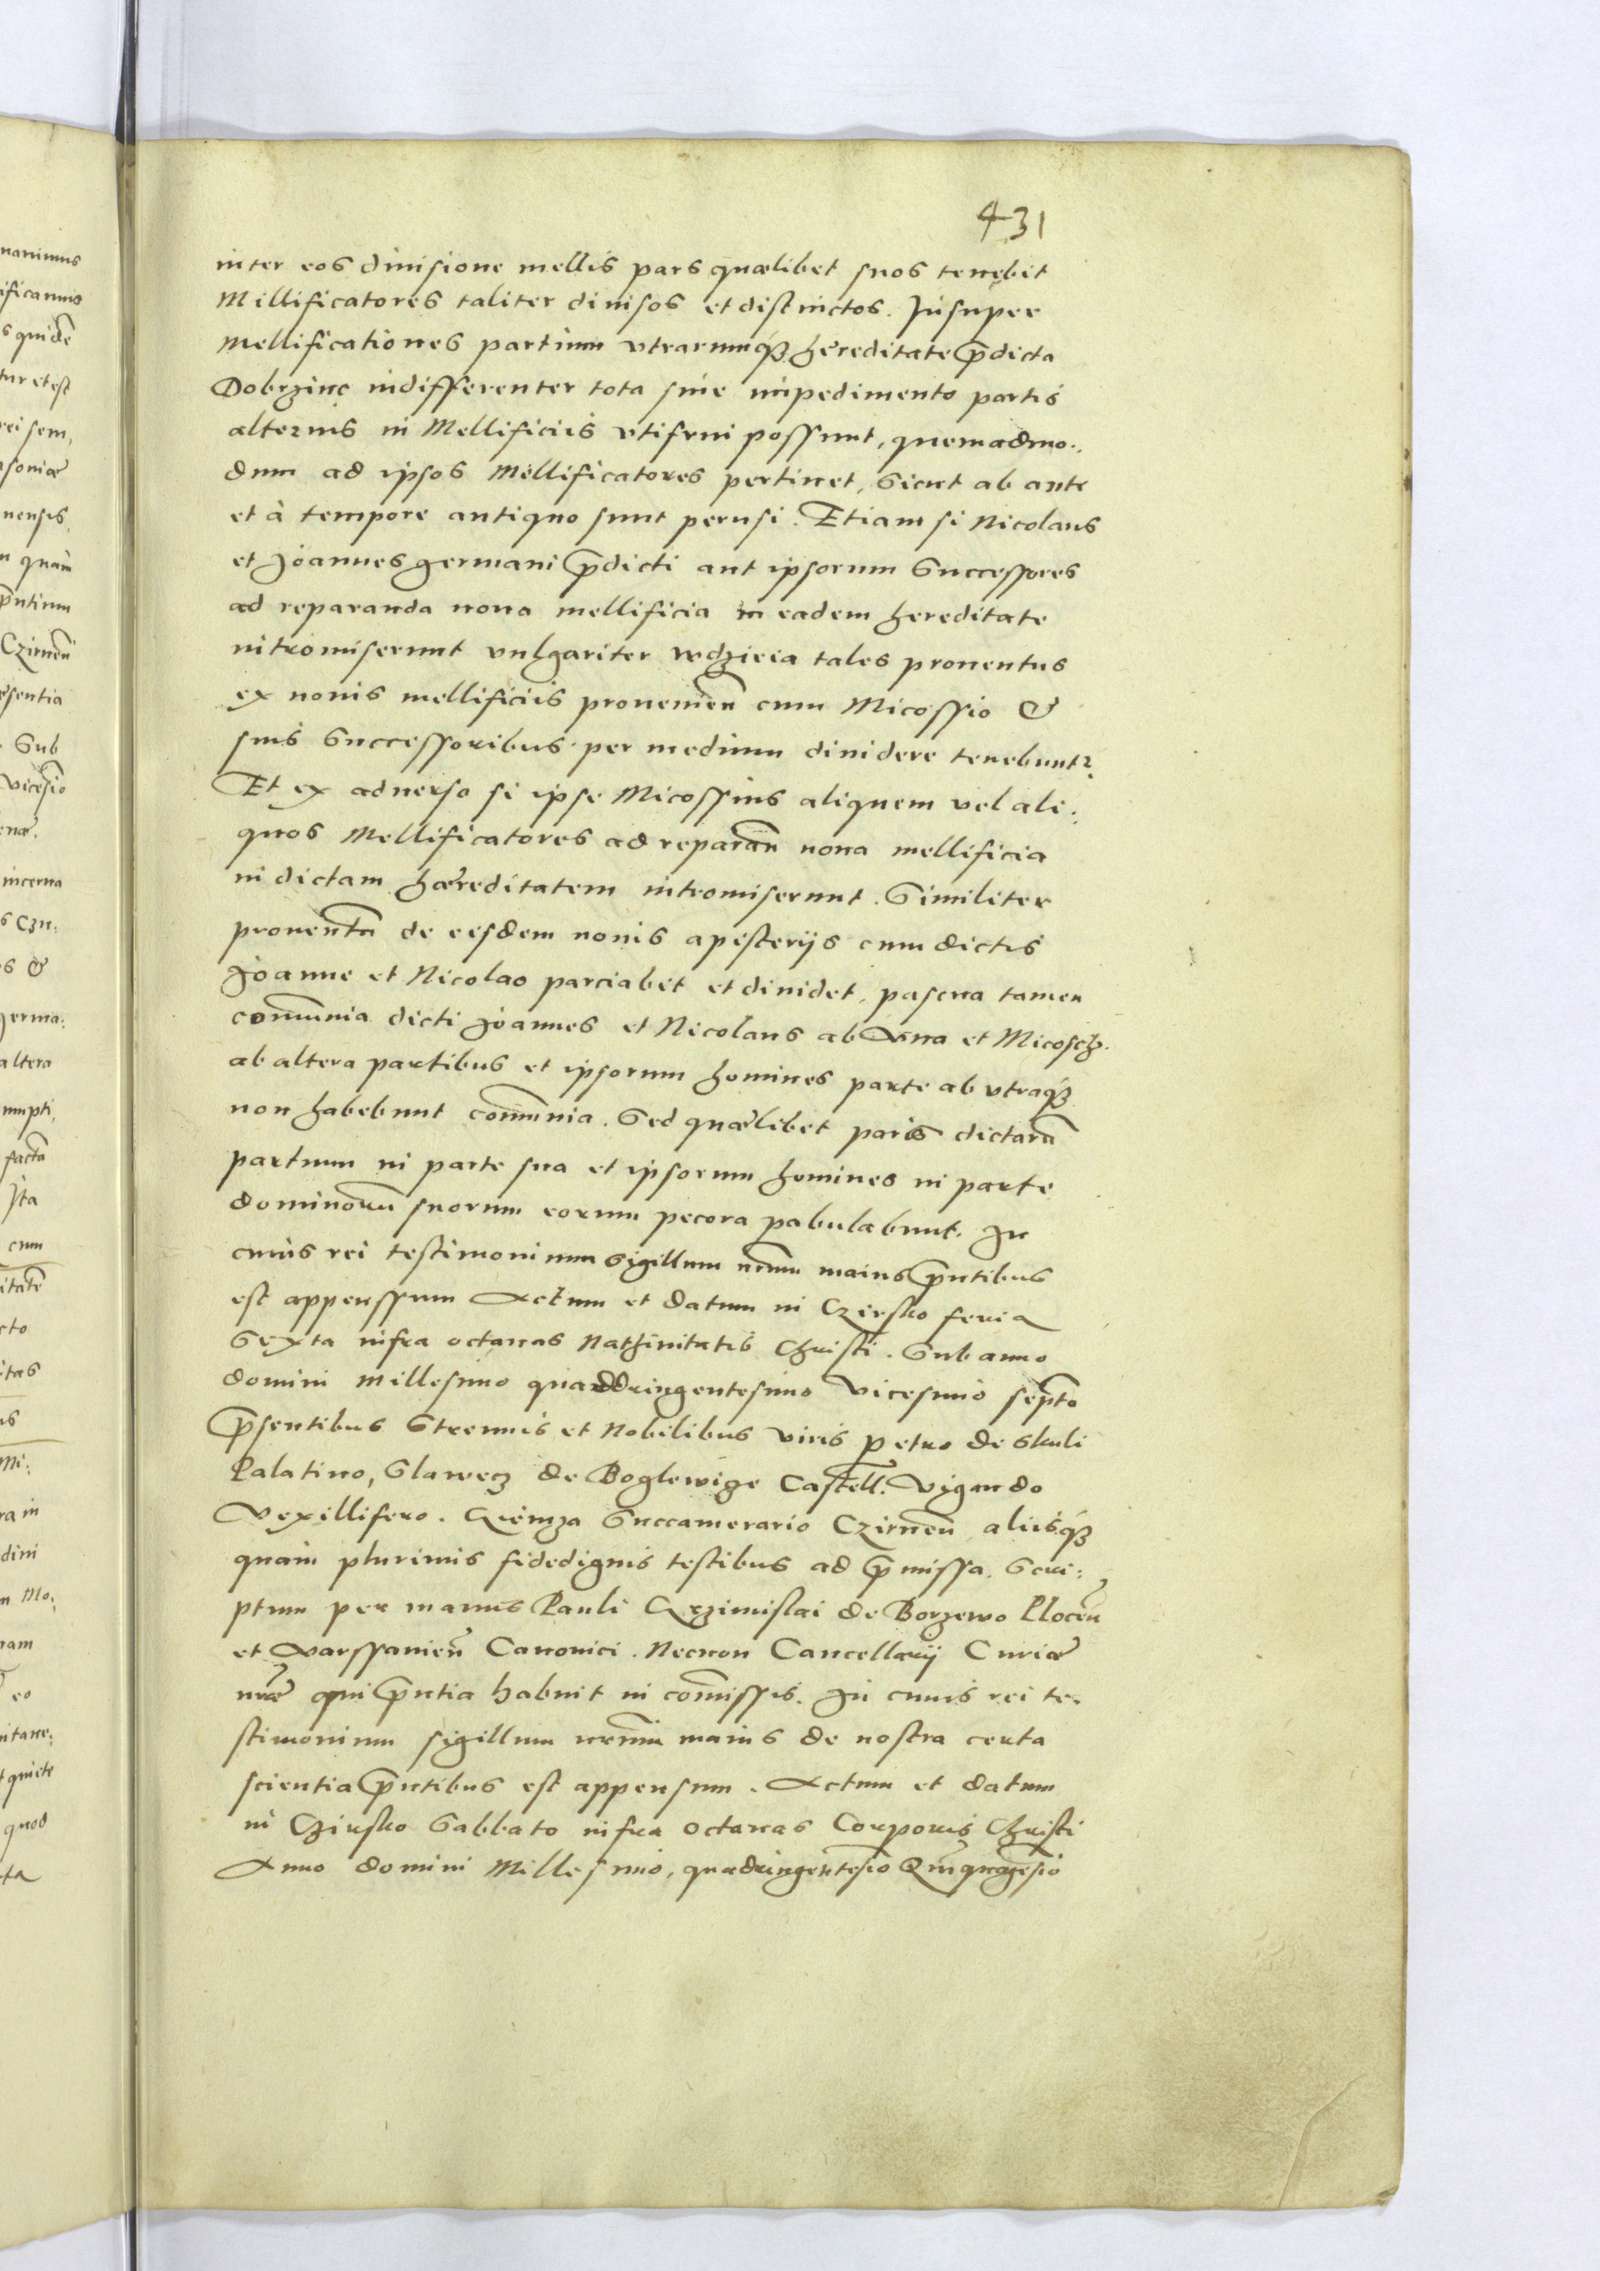 431
inter eos diuisione mellis pars quælibet suos tenebit
Millificatores taliter diuisos et distinctos. Insuper
mellificationes partium vtrarumq3 hereditate p̄dicta
Dobrzinc indifferenter tota sine impedimento partis
alterius in Mellificiis vtifrui possunt, quemadmo:
dum ad ipsos Mellificatores pertinet, Sicut ab ante
et à tempore antiquo sunt perusi. Etiam si Nicolaus
et Joannes germani p̄dicti aut ipsorum Successores
ad reparanda noua mellificia in eadem hereditate
intromiserunt vulgariter wdzieia tales prouentus
ex nouis mellificiis prouenieñ cum Micossio &
suis Successoribus per medium diuidere tenebunt᷑.
Et ex aduerso si ipse Micossius aliquem vel ali:
quos Mellificatores ad reparañ noua mellificia
in dictam hæreditatem intromiserunt. Similiter
prouenta de eisdem nouis apisterijs cum dictis
Joanne et Nicolao parciabit et diuidet, pascua tamen
com̄unia dicti Joannes et Nicolaus ab Vna et Micosch.
ab altera partibus et ipsorum homines parte ab vtraq3
non habebunt com̄unia. Sed quælibet paris dictarū
partium in parte sua et ipsorum homines in parte
dominorū suorum eorum pecora pabulabunt. In
cuius rei testimonium sigillum nr̄um maius p̄ntibus
est appenssum Actum et datum in Czirsko feria
Sexta infra octauas Nathiuitatis Christi. Sub anno
domini Millesimo quaddringentesimo Vicesimo Sep̄to
p̄sentibus Strenuis et Nobilibus viris petro de Skuli
Palatino, Slawecz de Boglewicze Castell. Vigando
Vexillifero. Succamerario Czirneñ aliisq3
quàm plurimis fidedignis testibus ad p̄missa. Scri:
ptum per manus Pauli de Borzewo Ploceñ
et Varssauieñ Canonici. Necnon Cancellarij Curiæ
nr̄æ qui p̄ntia habuit in com̄issis. In cuius rei te:
stimonium sigillum maius de nostra certa
scientia p̄ntibus est appensum. Actum et datum
in Czirsko Sabbato infra octauas Corporis Christi
Anno domini Millesimo, quadringentesīo Quīquagesīo